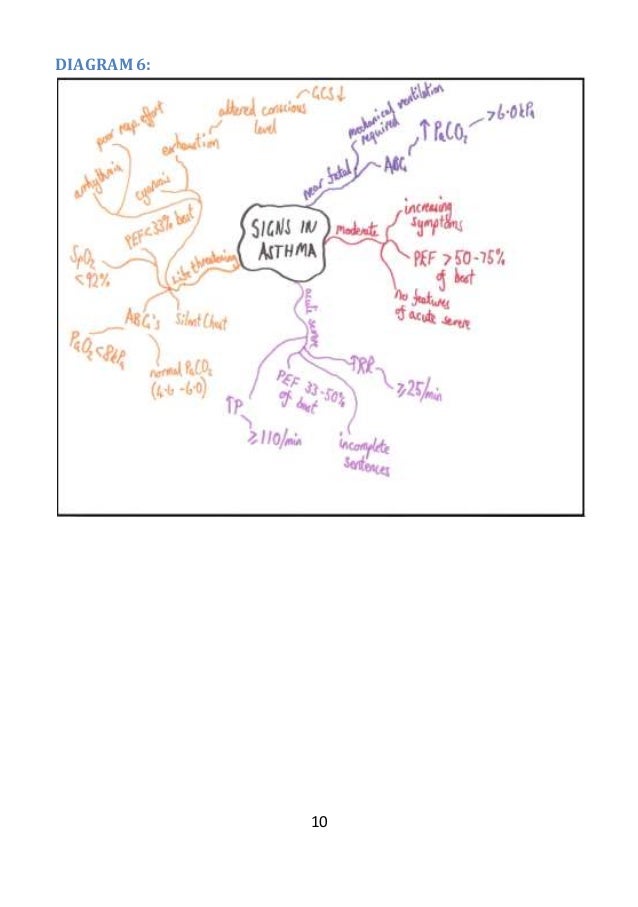 DIAGRAM 6:
SIGNS IN
ASTHMA
near fatal
mechanical ventilation
required
ABG
↑ PaCO₂
>6.0kPa
moderate
increasing
symptoms
PEF >50-75%
of best
no features
of acute severe
acute severe
↑RR
≥25/min
incomplete
sentences
PEF 33-50%
of best
↑P
≥110/min
Life threatening
Silent Chest
ABG's
normal PaCO₂
(4.6-6.0)
PaO₂ <8kPa
SpO₂
<92%
PEF <33% best
cyanosis
arrhythmia
poor resp. effort
exhaustion
altered conscious
level
GCS↓
10